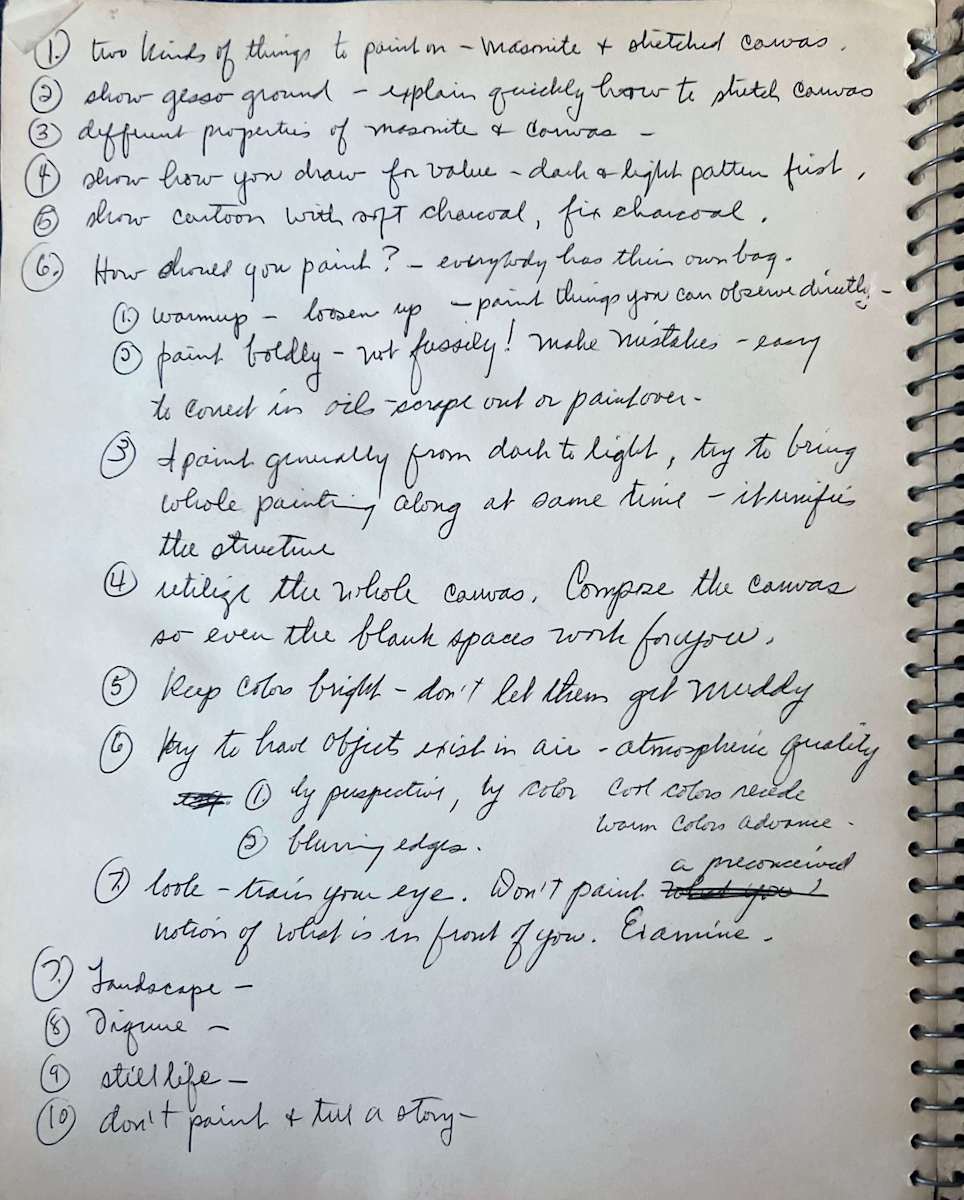 1. two kinds of things to paint on - masonite + stretched canvas.
2 show gesso ground - explain quickly how to stretch canvas
3 different properties of masonite & canvas -
4 show how you draw for value - dark & light pattern first.
5 show cartoon with soft charcoal, fix charcoal.
6. How should you paint? - everybody has their own bag.
1. warmup - loosen up - paint things you can observe directly -
2 paint boldly - not fussily! make mistakes - easy
to correct in oils - scrape out or paint over -
3 I paint generally from dark to light, try to bring
whole painting along at same time - it unifies
the structure
4 utilize the whole canvas. Compose the canvas
so even the blank spaces work for you.
5 Keep colors bright - don't let them get muddy
6 try to have objects exist in air - atmospheric quality
1 by perspective, by color cool colors recede
warm colors advance.
2 blurring edges.
a preconceived
7. look - train your eye. Don't paint what you
notion of what is in front of you. Examine.
7. Landscape -
8 Figure -
9 still life -
10 don't paint & tell a story -